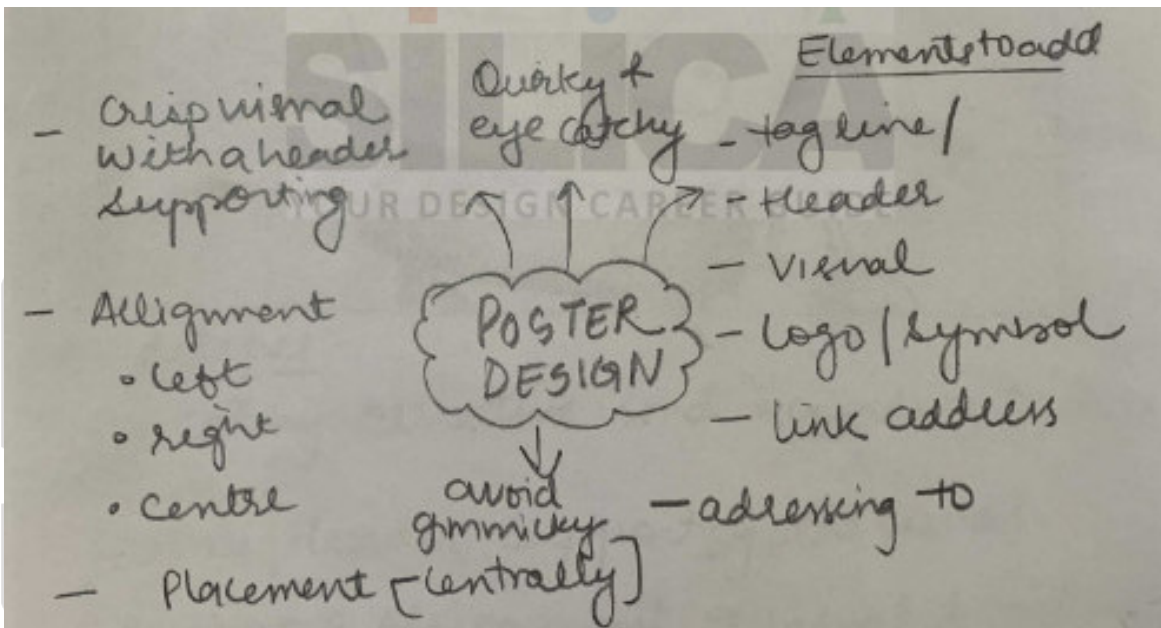 SiLiCA
YOUR DESIGN CAREER GUIDE
- Crisp visual
with a header
supporting
- Allignment
• left
• right
• centre
- Placement [centrally]
Quirky &
eye catchy
POSTER
DESIGN
avoid
gimmicky
Elements to add
- tag line /
- Header
- Visual
- Logo / Symbol
- link address
- adressing to